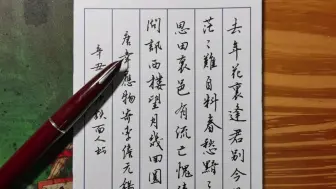 去年花裏逢君別今
茫々難自料春愁黯々
思田裏邑有流亡愧
問訊西樓望月幾回圓
唐韋應物寄李儋元錫
辛丑